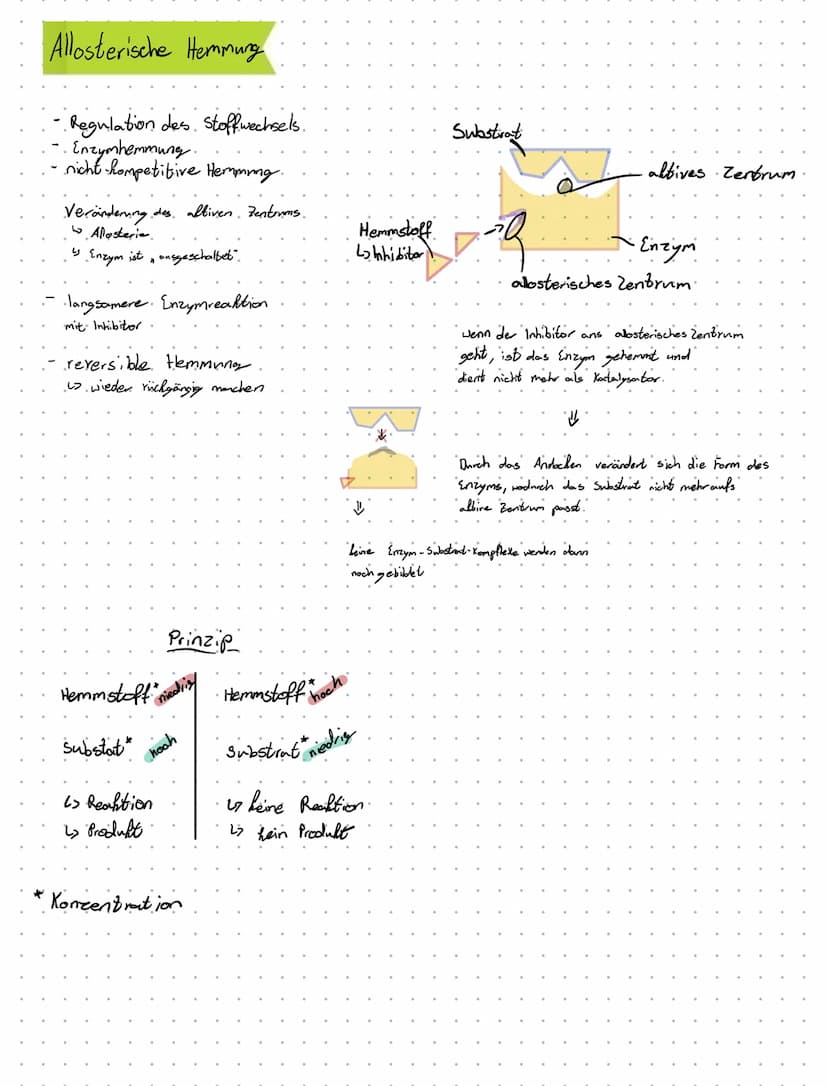 Allosterische Hemmung
- Regulation des Stoffwechsels
- Enzymhemmung
- nicht-kompetitive Hemmung
Veränderung des aktiven Zentrums
↳ Allosterie
↳ Enzym ist „ausgeschaltet"
- langsamere Enzymreaktion
mit Inhibitor
- reversible Hemmung
↳ wieder rückgängig machen
Substrat
aktives Zentrum
Hemmstoff
↳ Inhibitor
Enzym
allosterisches Zentrum
wenn der Inhibitor ans allosterisches Zentrum
geht, ist das Enzym gehemmt und
dient nicht mehr als Katalysator.
⇓
Durch das Andocken verändert sich die Form des
Enzyms, wodurch das Substrat nicht mehr aufs
aktive Zentrum passt.
⇓
keine Enzym-Substrat-Komplexe werden dann
noch gebildet
Prinzip
Hemmstoff* niedrig
Substat* hoch
↳ Reaktion
↳ Produkt
Hemmstoff* hoch
Substrat* niedrig
↳ keine Reaktion
↳ kein Produkt
* Konzentration